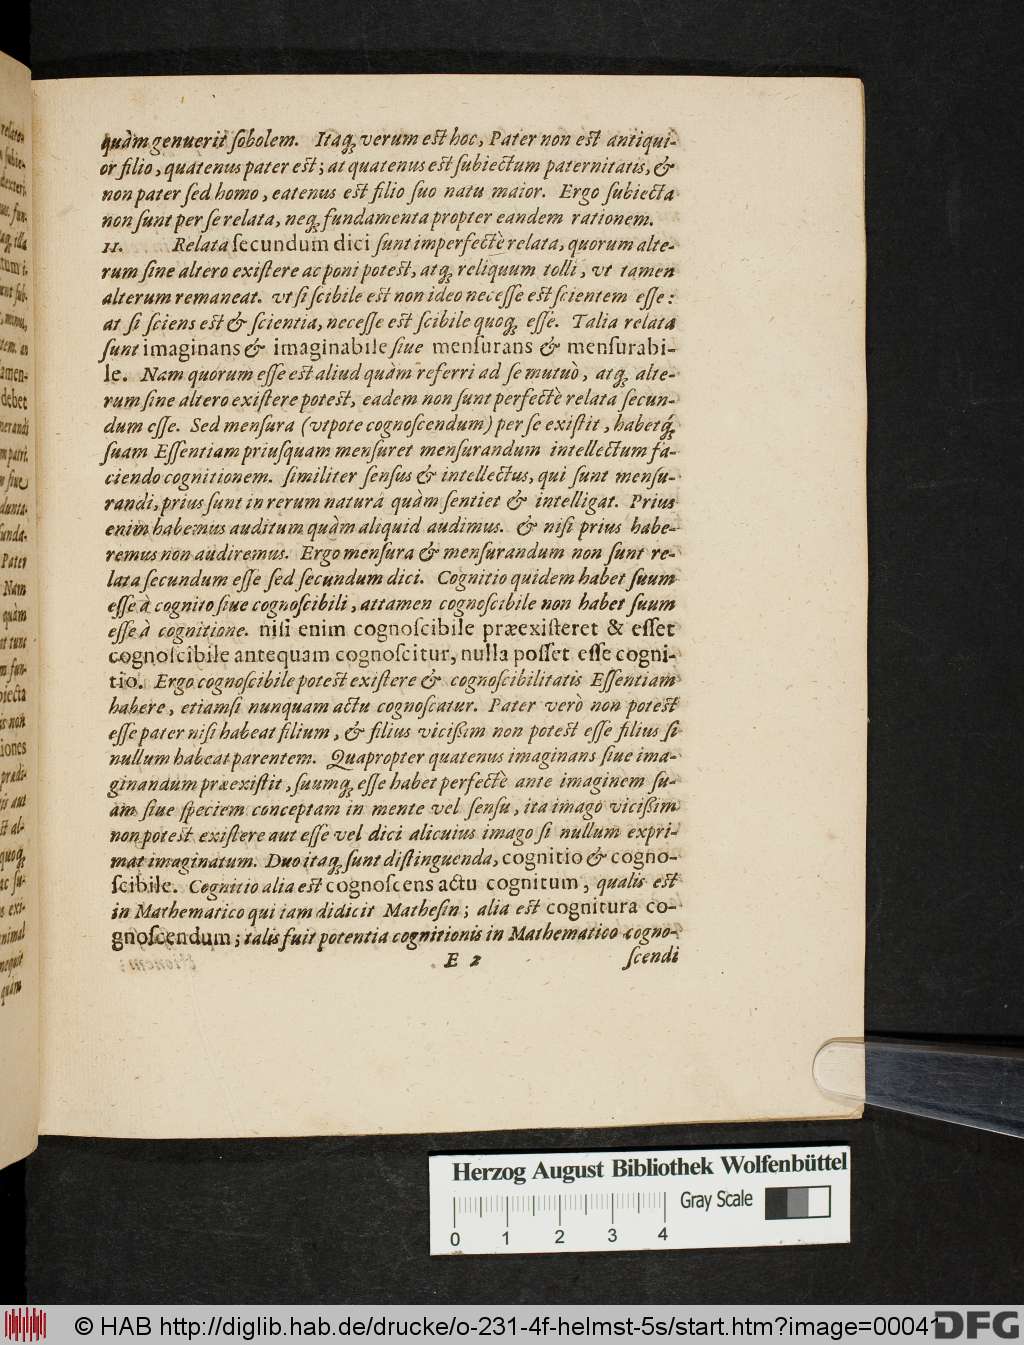 quàm genuerit ſobolem. Itaq; verum est hoc, Pater non est antiqui-
or filio, quatenus pater est; at quatenus est ſubiectum paternitatis, &
non pater ſed homo, eatenus est filio ſuo natu maior. Ergo ſubiecta
non ſunt per ſe relata, neq; fundamenta propter eandem rationem.
11. Relata ſecundum dici ſunt imperfectè relata, quorum alte-
rum ſine altero exiſtere ac poni potest, atq; reliquum tolli, vt tamen
alterum remaneat. vt ſi ſcibile est non ideo neceſſe est ſcientem eſſe:
at ſi ſciens est & ſcientia, neceſſe est ſcibile quoq; eſſe. Talia relata
ſunt imaginans & imaginabile ſiue menſurans & menſurabi-
le. Nam quorum eſſe est aliud quàm referri ad ſe mutuò, atq; alte-
rum ſine altero exiſtere potest, eadem non ſunt perfectè relata ſecun-
dum eſſe. Sed menſura (vtpote cognoſcendum) per ſe exiſtit, habetq́;
ſuam Eſſentiam priuſquam menſuret menſurandum intellectum fa-
ciendo cognitionem. ſimiliter ſenſus & intellectus, qui ſunt menſu-
randi, prius ſunt in rerum naturâ quàm ſentiet & intelligat. Prius
enim habemus auditum quàm aliquid audimus. & niſi prius habe-
remus non audiremus. Ergo menſura & menſurandum non ſunt re-
lata ſecundum eſſe ſed ſecundum dici. Cognitio quidem habet ſuum
eſſe à cognito ſiue cognoſcibili, attamen cognoſcibile non habet ſuum
eſſe à cognitione. niſi enim cognoſcibile præexiſteret & eſſet
cognoſcibile antequam cognoſcitur, nulla poſſet eſſe cogni-
tio. Ergo cognoſcibile potest exiſtere & cognoſcibilitatis Eſſentiam
habere, etiamſi nunquam actu cognoſcatur. Pater verò non potest
eſſe pater niſi habeat filium, & filius viciſſim non potest eſſe filius ſi
nullum habeat parentem. Quapropter quatenus imaginans ſiue ima-
ginandum præexiſtit, ſuumq; eſſe habet perfectè ante imaginem ſu-
am ſiue ſpeciem conceptam in mente vel ſenſu, ita imago viciſſim
non potest exiſtere aut eſſe vel dici alicuius imago ſi nullum expri-
mat imaginatum. Duo itaq; ſunt diſtinguenda, cognitio & cogno-
ſcibile. Cognitio alia est cognoſcens actu cognitum, qualis est
in Mathematico qui iam didicit Matheſin; alia est cognitura co-
gnoſcendum; talis fuit potentia cognitionis in Mathematico cogno-
E 2 ſcendi
Herzog August Bibliothek Wolfenbüttel
Gray Scale
0 1 2 3 4
© HAB http://diglib.hab.de/drucke/o-231-4f-helmst-5s/start.htm?image=00041
DFG